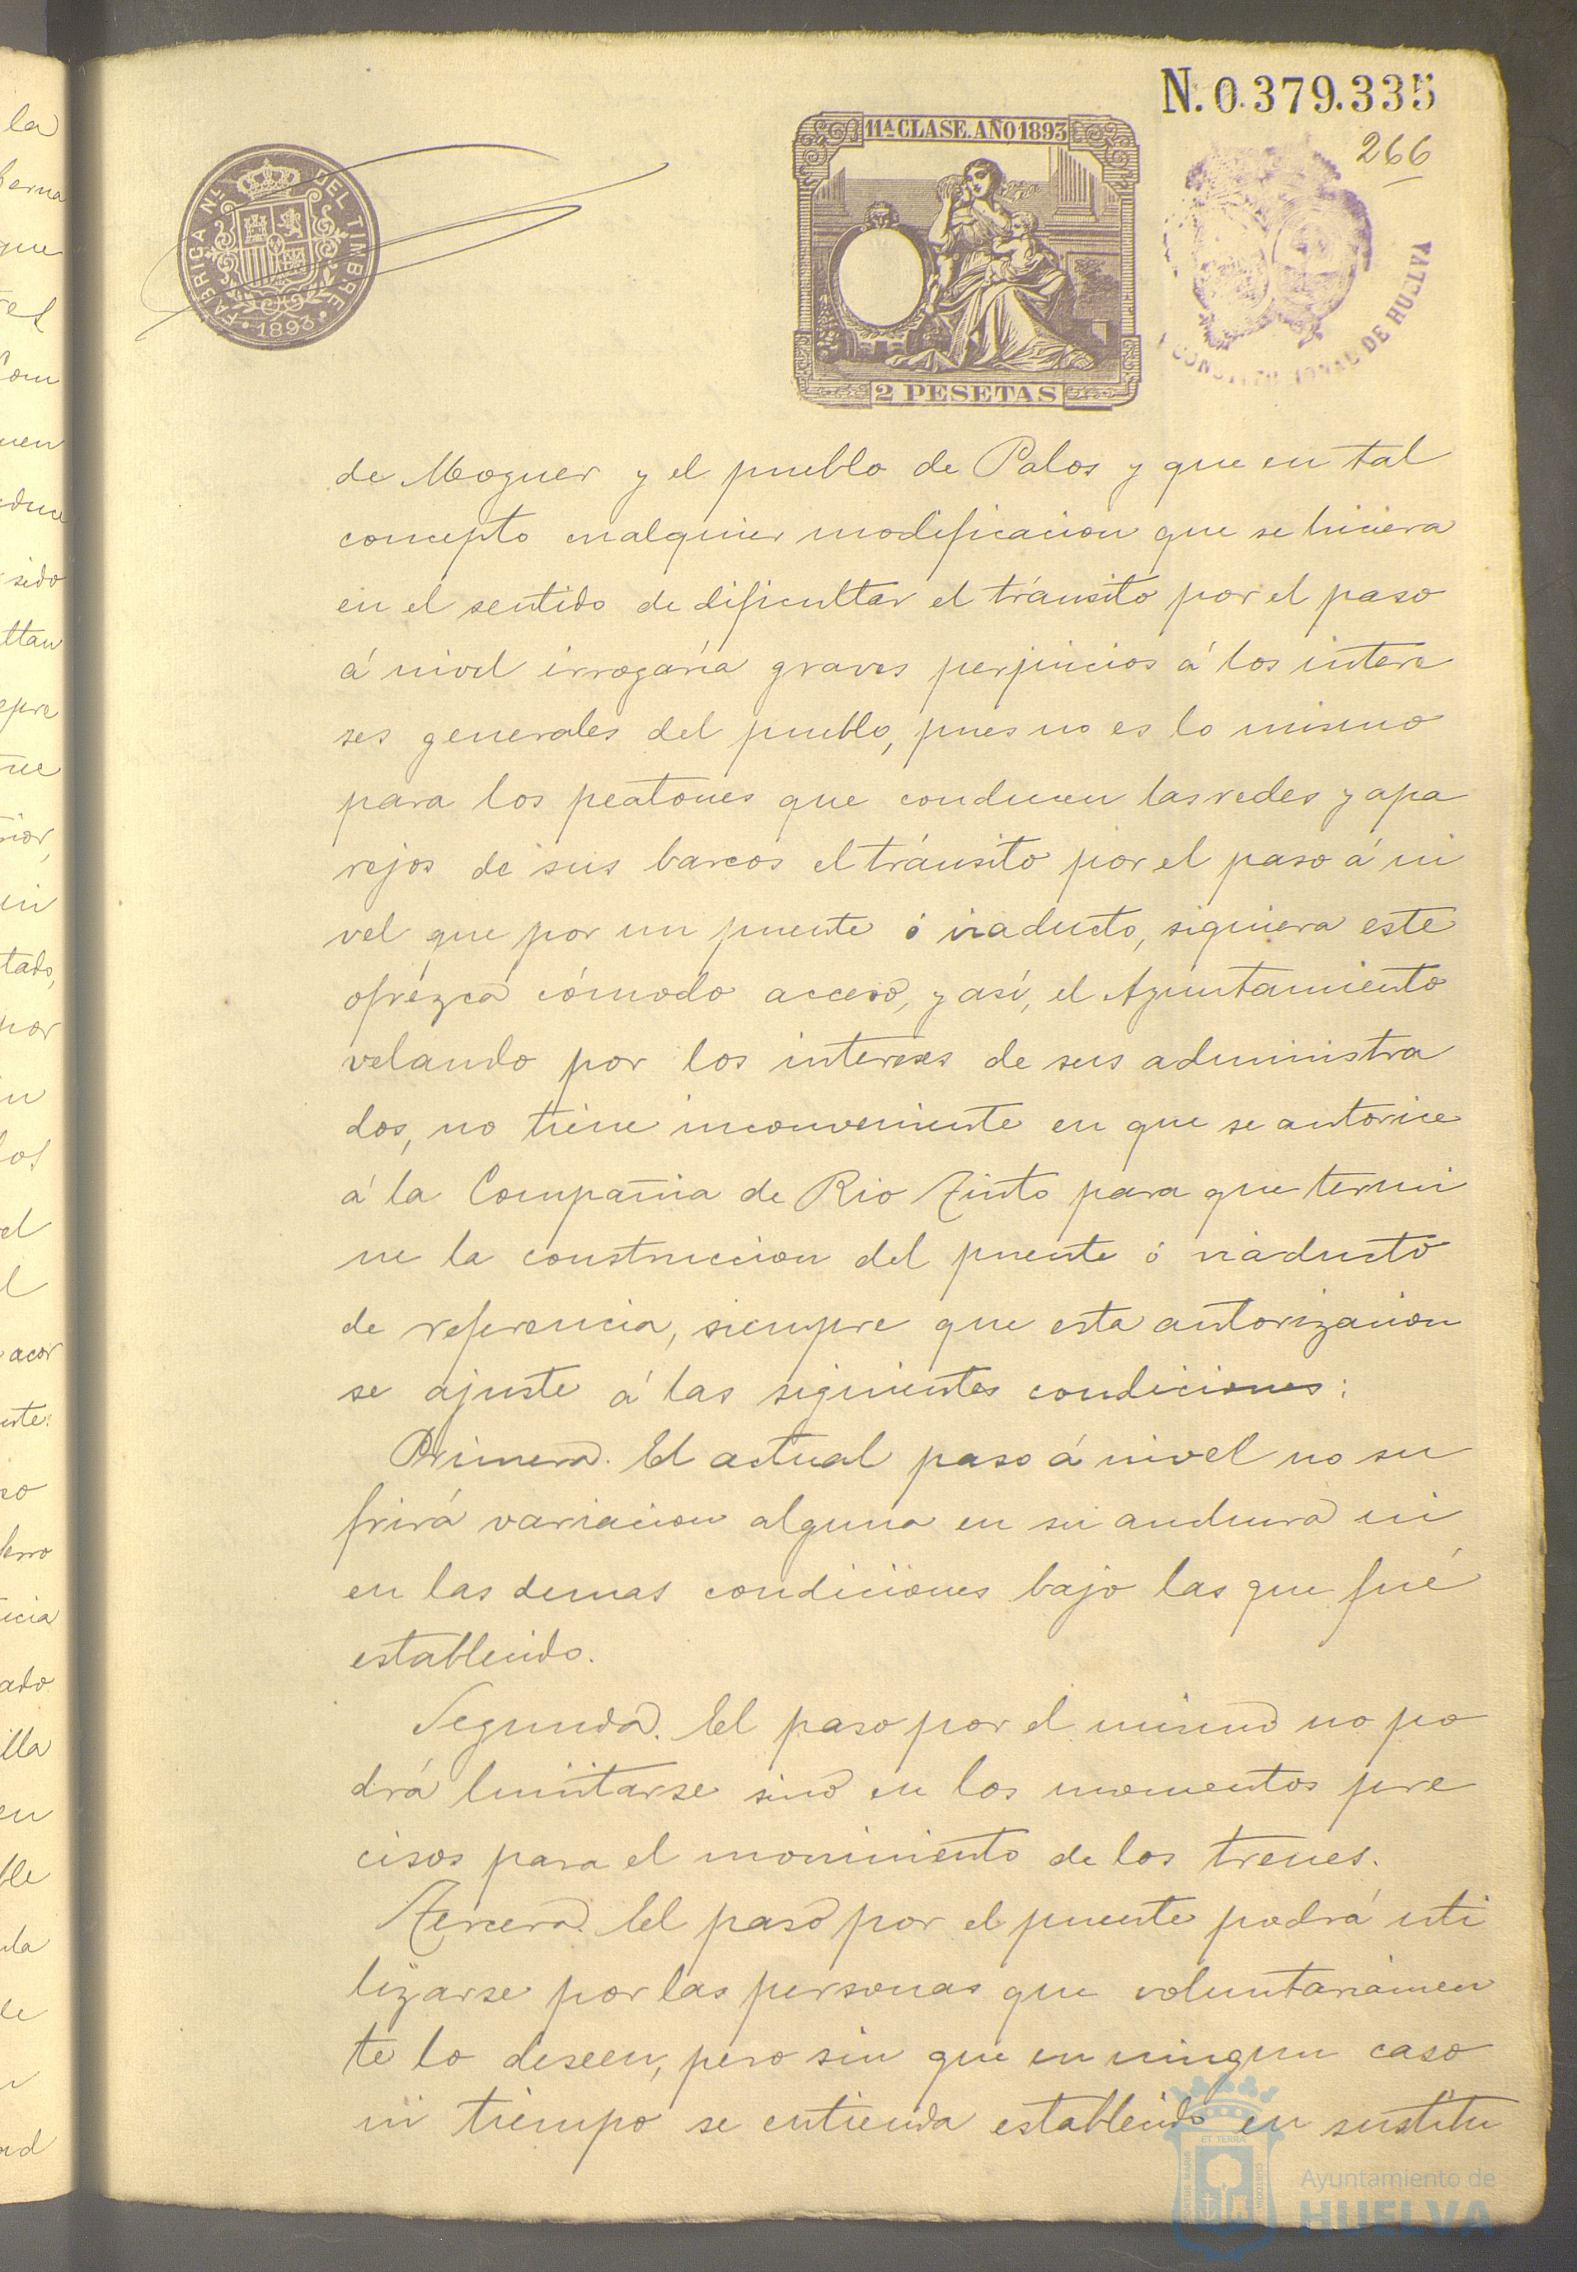 N. 0.379.335
266
11ª CLASE. AÑO 1893
FABRICA Nl. DEL TIMBRE
1893
2 PESETAS
CONSTITUCIONAL DE HUELVA
de Moguer y el pueblo de Palos y que en tal
concepto cualquier modificacion que se hiciera
en el sentido de dificultar el tránsito por el paso
á nivel irrogaría graves perjuicios á los intere
ses generales del pueblo, pues no es lo mismo
para los peatones que conducen las redes y apa
rejos de sus barcos el tránsito por el paso á ni
vel que por un puente ó viaducto, siquiera este
ofrezca cómodo acceso, y así, el Ayuntamiento
velando por los intereses de sus administra
dos, no tiene inconveniente en que se autorice
á la Compañia de Rio Tinto para que termi
ne la construccion del puente ó viaducto
de referencia, siempre que esta autorizacion
se ajuste á las siguientes condiciones:
Primera. El actual paso á nivel no su
frirá variacion alguna en su anchura ni
en las demas condiciones bajo las que fué
establecido.
Segunda. El paso por el mismo no po
drá limitarse sinó en los momentos pre
cisos para el movimiento de los trenes.
Tercera. El paso por el puente podrá uti
lizarse por las personas que voluntariamen
te lo deseen, pero sin que en ningun caso
ni tiempo se entienda establecido en sustitu
Ayuntamiento de
HUELVA